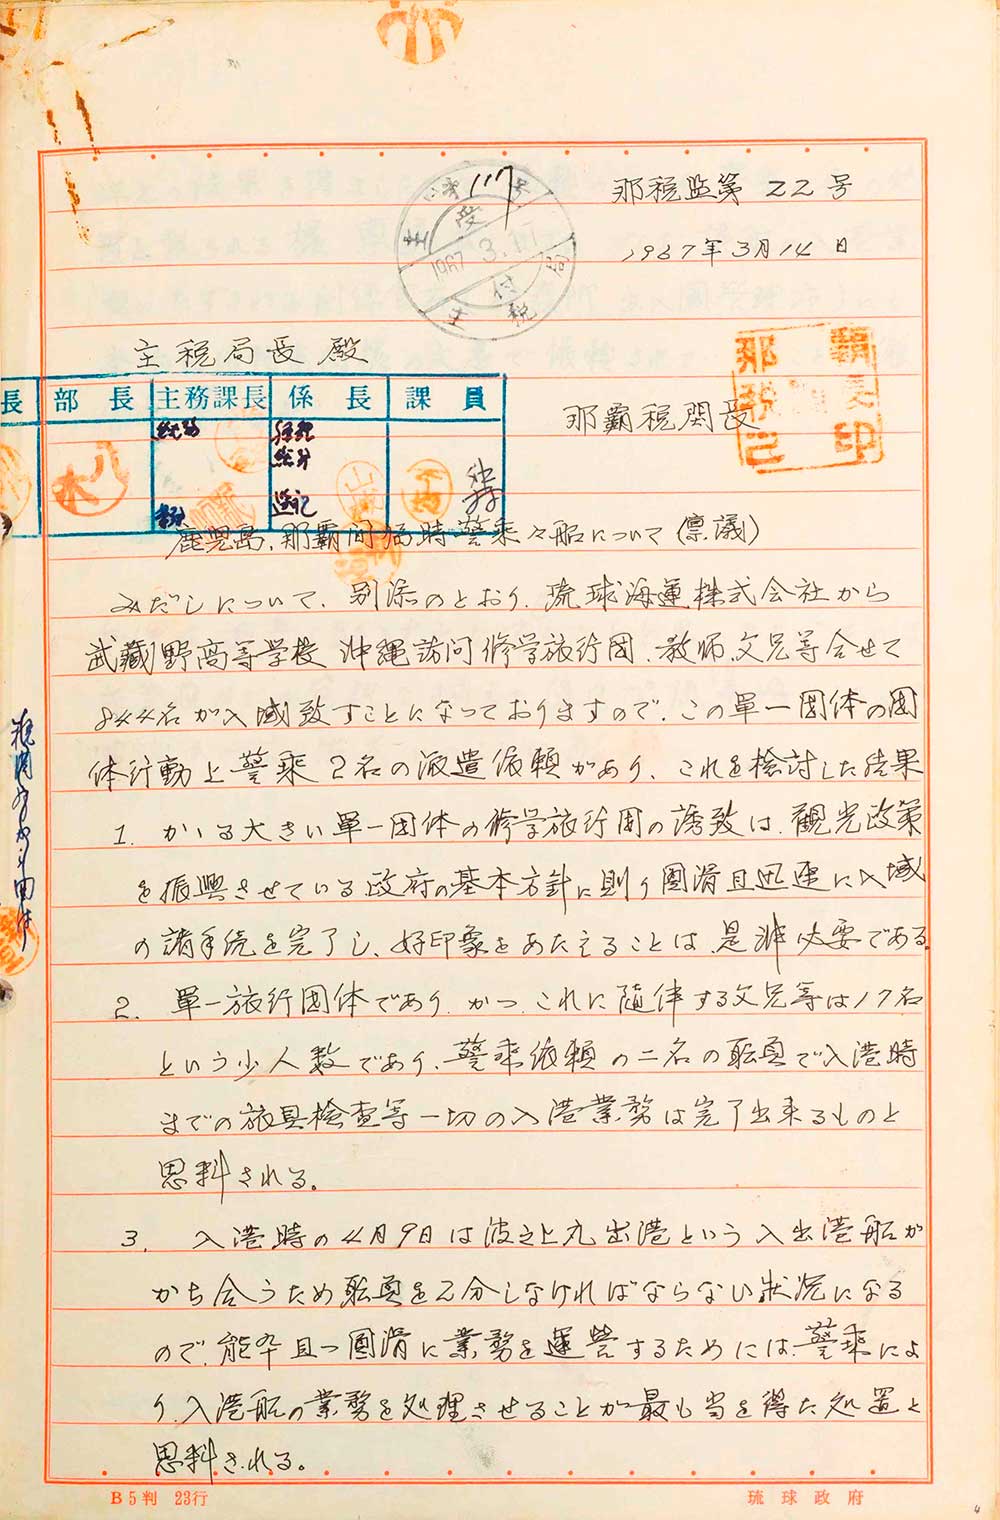 那税監第22号
1967年3月14日
受付
1967.3.
主税局
117
主税局長殿
長 部長 主務課長 係長 課員
八木
那覇税関長
鹿児島、那覇間臨時警乗々船について(稟議)
みだしについて、別添のとおり、琉球海運株式会社から
武蔵野高等学校沖縄訪問修学旅行団、教師、父兄等合せて
844名が入域致すことになっておりますので、この單一団体の団
体行動上警乗2名の派遣依頼があり、これを検討した結果
1. かゝる大きい單一団体の修学旅行団の誘致は、観光政策
を振興させている政府の基本方針に則り圓滑且迅速に入域
の諸手続を完了し、好印象をあたえることは、是非必要である。
2. 單一旅行団体であり、かつ、これに随伴する父兄等は17名
という少人数であり、警乗依頼の二名の職員で入港時
までの旅具検査等一切の入港業務は完了出来るものと
思料される。
3. 入港時の4月9日は波之上丸出港という入出港船が
かち合うため職員を2分しなければならない状況になる
ので、能率且つ圓滑に業務を運営するためには、警乗によ
り、入港船の業務を処理させることが最も当を得た処置と
思料される。
B5判 23行
琉球政府
4